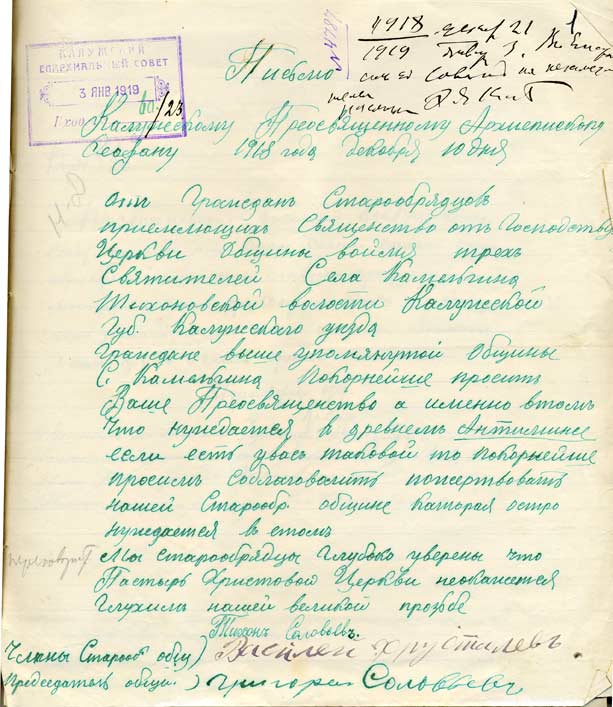 1918 декаб 21
1919 Янвр 3.
КАЛУЖСКИЙ
ЕПАРХИАЛЬНЫЙ СОВЕТ
3 ЯНВ 1919
за /23
№ 4874
1
Письмо
Калужскому Преосвященному Архиепископу
Феофану 1918 года декабря 10 дня
отъ Гражданъ Старообрядцовъ
приемлющихъ Священство отъ Господству
Церкви Общины воймя трехъ
Святителей Села Камельгина
Тихоновской волости Калужской
Губ. Калужскаго уезда
Граждане выше упомянутой Общины
С. Камельгина Покорнейше просить
Ваше Преосвященство а именно втомъ
Что нуждается в древнемъ Антиминсе
если есть увасъ таковой то Покорнейше
просимъ соблаговолить пожертвовать
нашей Старообр. общине Каторая остро
нуждается в етомъ
Мы старообрядцы глубоко уверены что
Пастырь Христовой Церкви неокажется
Глухимъ нашей великой прозьбе
Тихонъ Соловьевъ.
Члены Старооб общ) Василей Хрусталевъ.
Председатель общи.) Григорей Соловьевъ